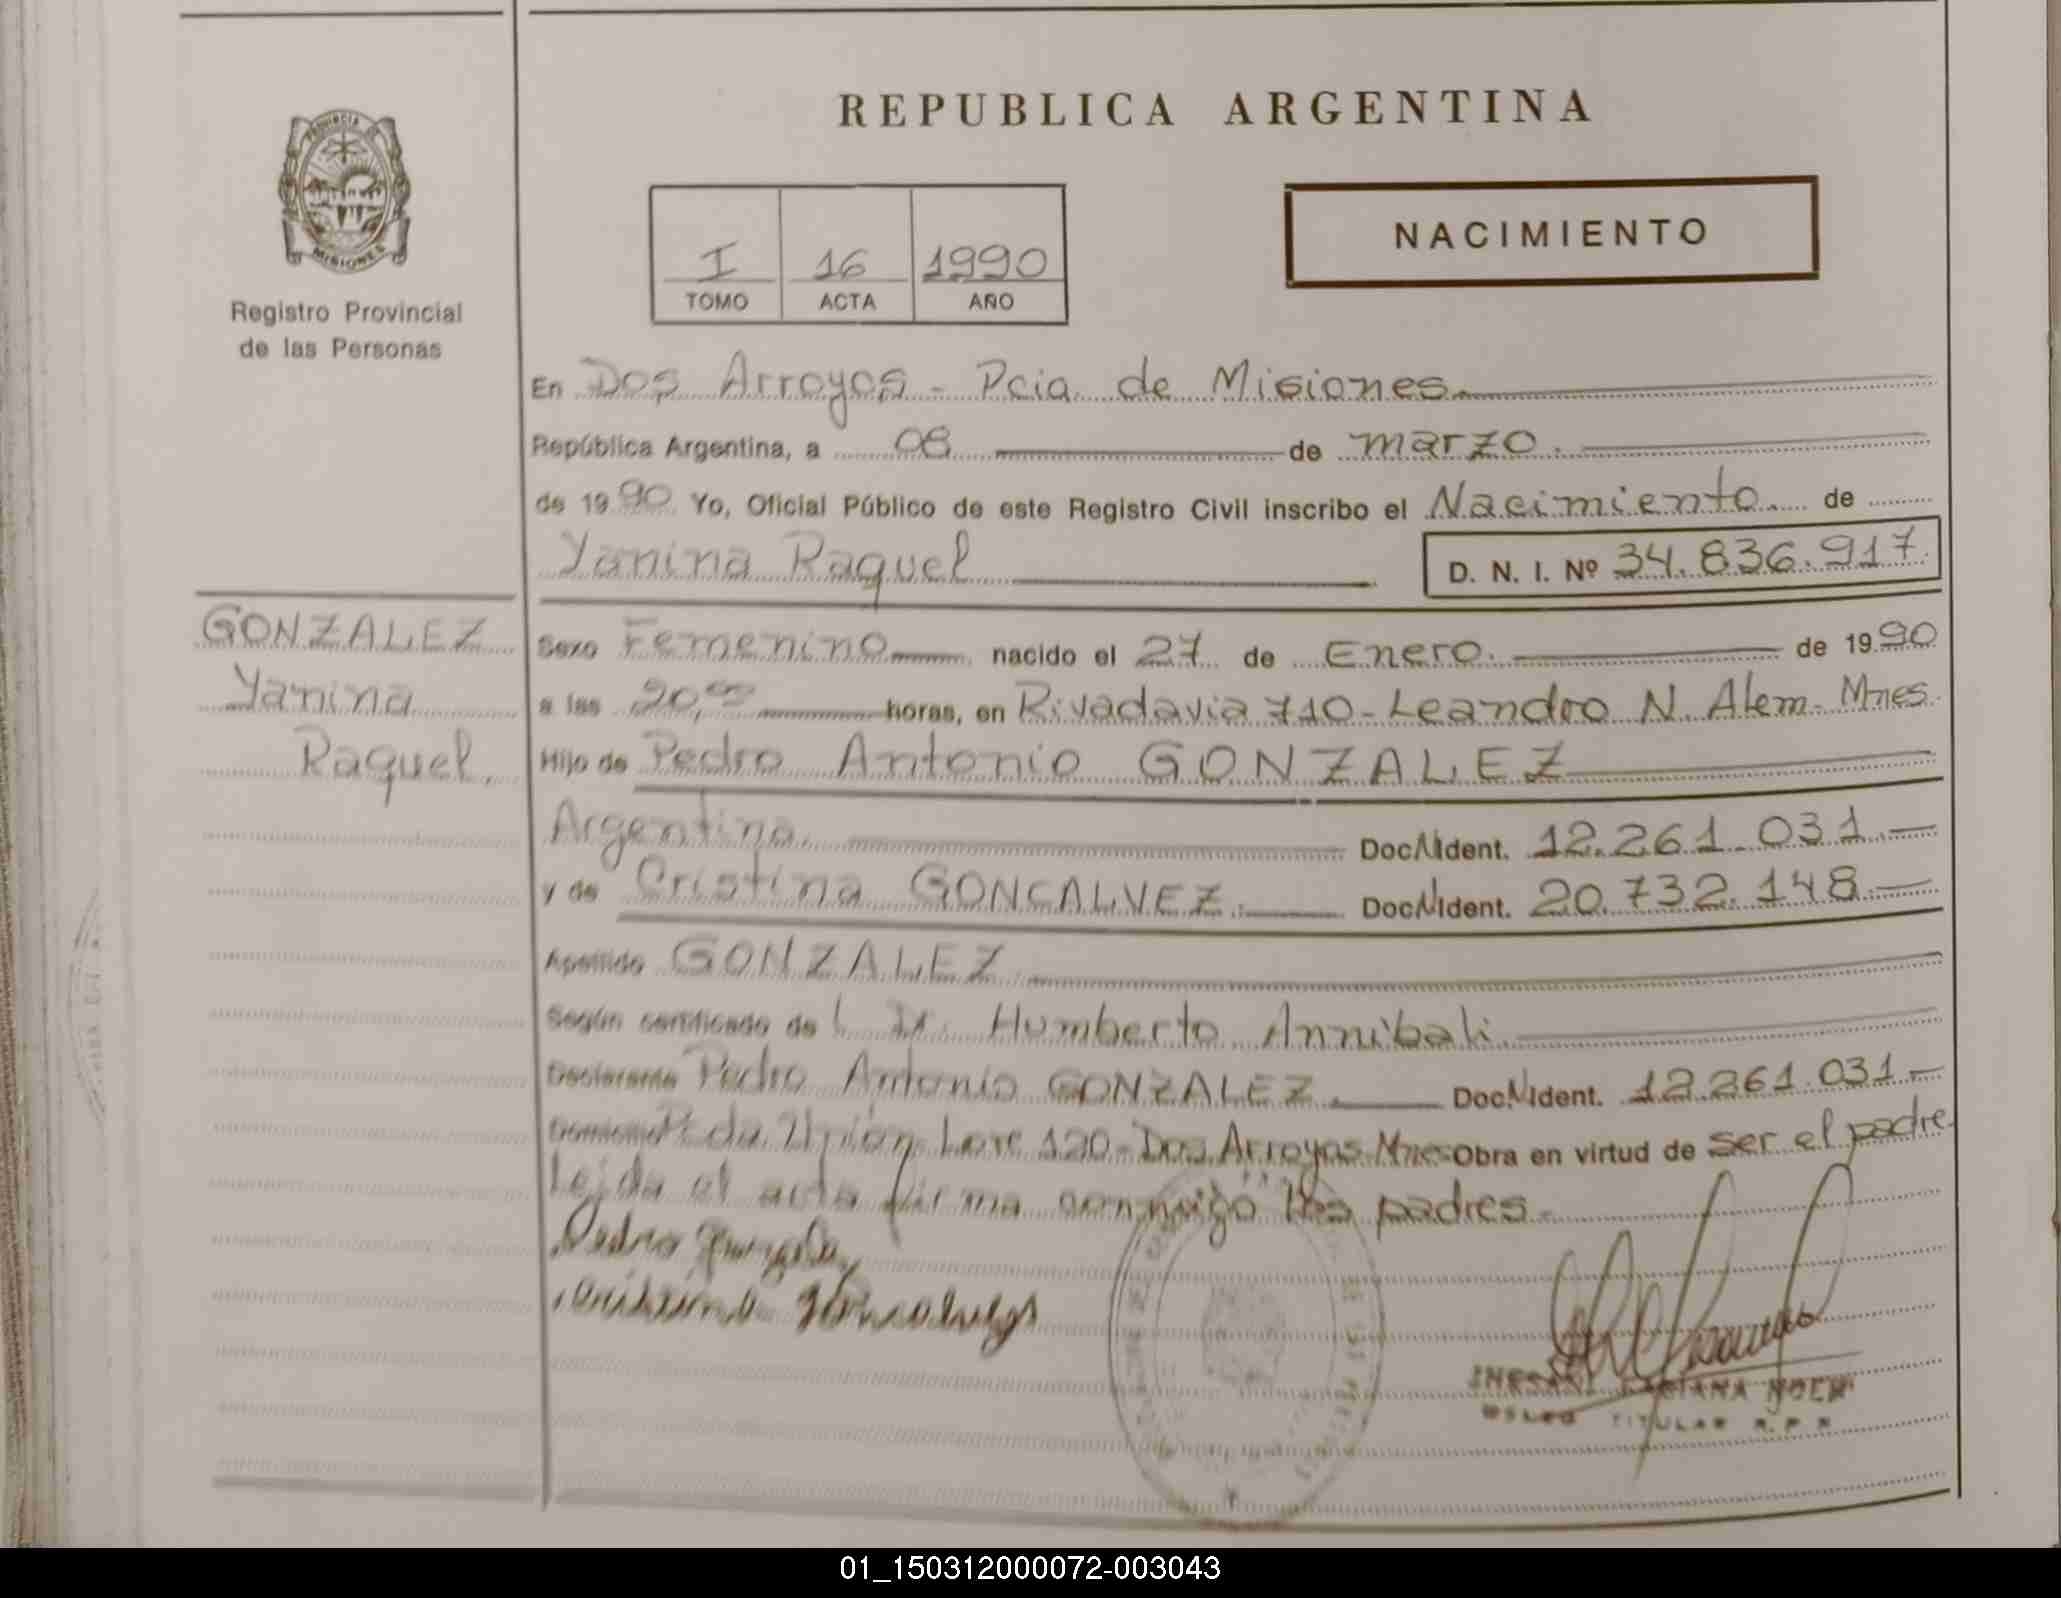 REPUBLICA ARGENTINA
PROVINCIA DE
MISIONES
Registro Provincial
de las Personas
I 16 1990
TOMO ACTA AÑO
NACIMIENTO
En Dos Arroyos - Pcia. de Misiones
República Argentina, a 08 de marzo.
de 1990 Yo, Oficial Público de este Registro Civil inscribo el Nacimiento de
Yanina Raquel
D. N. I. Nº 34.836.917
GONZALEZ
Yanina
Raquel.
Sexo Femenino nacido el 27 de Enero. de 1990
a las 20,00 horas, en Rivadavia 710 - Leandro N. Alem - Mnes.
Hijo de Pedro Antonio GONZALEZ
Argentina. Doc. Ident. 12.261.031.-
y de Cristina GONCALVEZ. Doc. Ident. 20.732.148.-
Apellido GONZALEZ
Según certificado de Dr. Humberto Annibali.
Declarante Pedro Antonio GONZALEZ. Doc. Ident. 12.261.031.-
Domicilio Pcda. Unión Lote 120 - Dos Arroyos - Mnes Obra en virtud de ser el padre
Leída el acta firma conmigo los padres.-
Pedro Gonzalez
FABIANA NOEMI
TITULAR R. P. P.
01_150312000072-003043